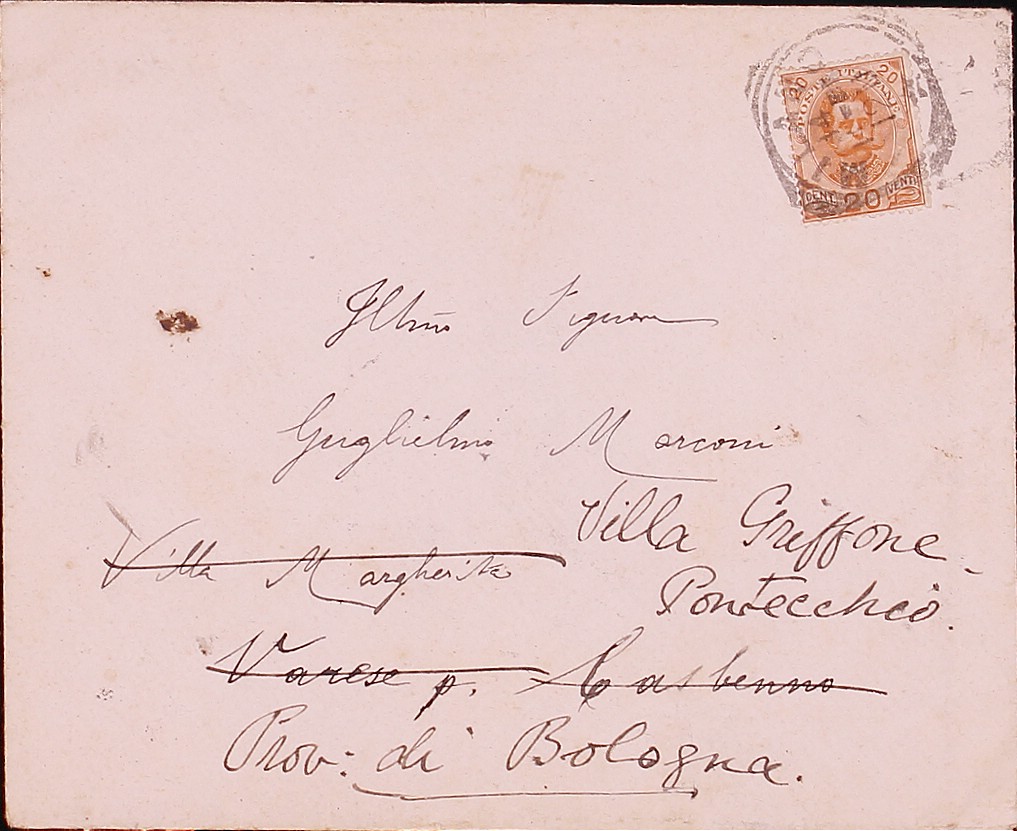 POSTE ITALIANE
20 20
CENT. 20 VENTI
Illmo Signore
Guglielmo Marconi
Villa Griffone
Villa Margherita
Pontecchio.
Varese p. Casbenno
Prov: di Bologna.